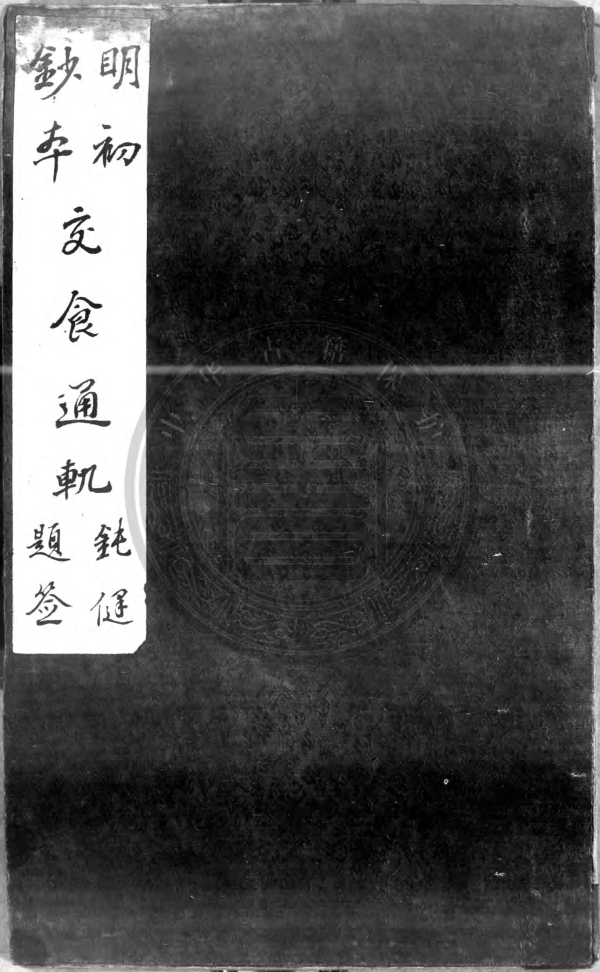 明初
鈔本
交食通軌
鈍健
題簽